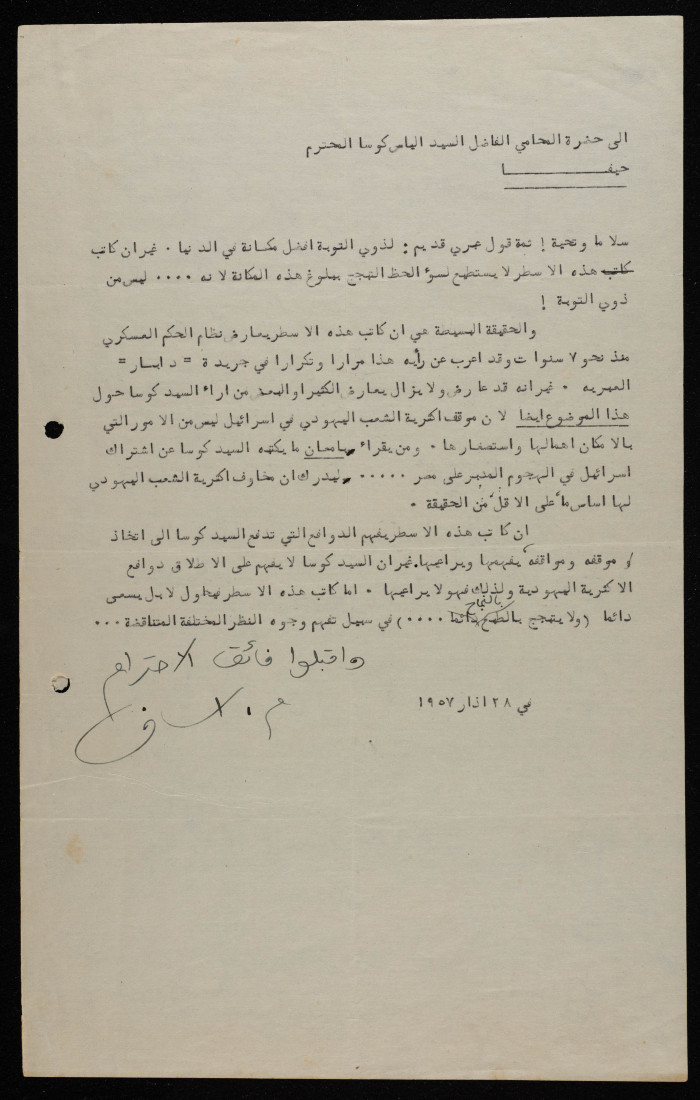 الى حضرة المحامي الفاضل السيد الياس كوسا المحترم
حيفــــــــا
سلاما وتحية ! ثمة قول عبري قديم : لذوي التوبة افضل مكانة في الدنيا ٠ غير ان كاتب
كاتب هذه الاسطر لا يستطيع لسوء الحظ النجح ببلوغ هذه المكانة لانه ٠٠٠٠ ليس من
ذوي التوبة !
والحقيقة البسيطة هي ان كاتب هذه الاسطر يعارض نظام الحكم العسكري
منذ نحو ٧ سنوات وقد اعرب عن رأيه هذا مرارا وتكرارا في جريدة = دابار =
العبريه ٠ غير انه قد عارض ولا يزال يعارض الكثير او البعض من اراء السيد كوسا حول
هذا الموضوع ايضا لان موقف اكثرية الشعب اليهودي في اسرائيل ليس من الامور التي
بالامكان اهمالها واستصغارها ٠ ومن يقراء بامعان ما يكتبه السيد كوسا عن اشتراك
اسرائيل في الهجوم المدبر على مصر ٠٠٠٠٠ ليدرك ان مخاوف اكثرية الشعب اليهودي
لها اساس ما على الاقل من الحقيقة ٠
ان كاتب هذه الاسطر يفهم الدوافع التي تدفع السيد كوسا الى اتخاذ
موقفه ومواقفه يفهمها ويراعيها. غير ان السيد كوسا لا يفهم على الاطلاق دوافع
الاكثرية اليهودية ولذلك فهو لا يراعيها ٠ اما كاتب هذه الاسطر فيحاول لا بل يسعى
دائما (ولا ينجح بالطبع بالنجاح دائما ٠٠٠٠) في سبيل تفهم وجوه النظر المختلفة المتناقضة ٠٠٠
واقبلوا فائق الاحترام
م. اساف
في ٢٨ اذار ١٩٥٧